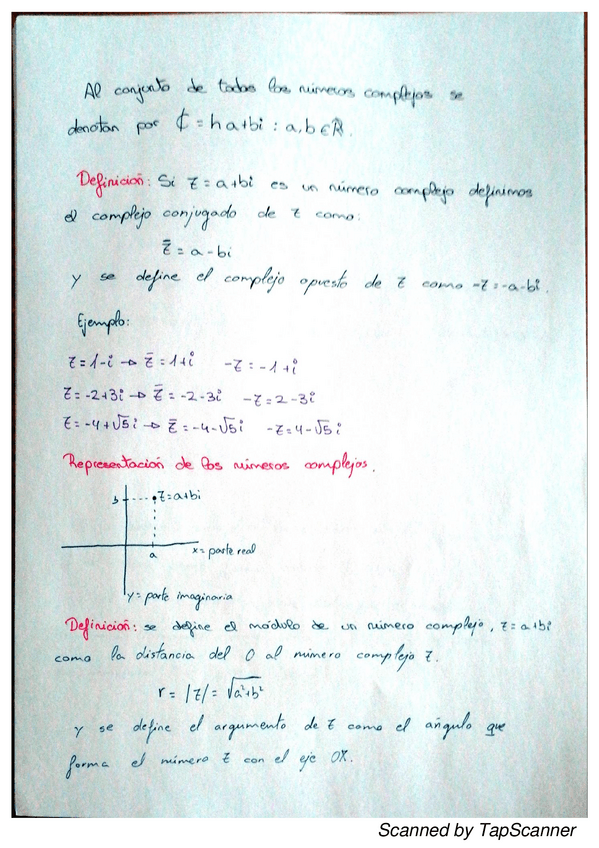 Al conjunto de todos los números complejos se
denotan por ℂ = {a+bi : a,b ∈ ℝ.
Definición: Si z = a+bi es un número complejo definimos
el complejo conjugado de z como:
z̄ = a-bi
y se define el complejo opuesto de z como -z = -a-bi.
Ejemplo:
z = 1-i → z̄ = 1+i -z = -1+i
z = -2+3i → z̄ = -2-3i -z = 2-3i
z = -4+√5 i → z̄ = -4-√5 i -z = 4-√5 i
Representación de los números complejos.
b z = a+bi
a x = parte real
y = parte imaginaria
Definición: se define el módulo de un número complejo, z = a+bi
como la distancia del 0 al número complejo z.
r = |z| = √a²+b²
y se define el argumento de z como el ángulo que
forma el número z con el eje OX.
Scanned by TapScanner